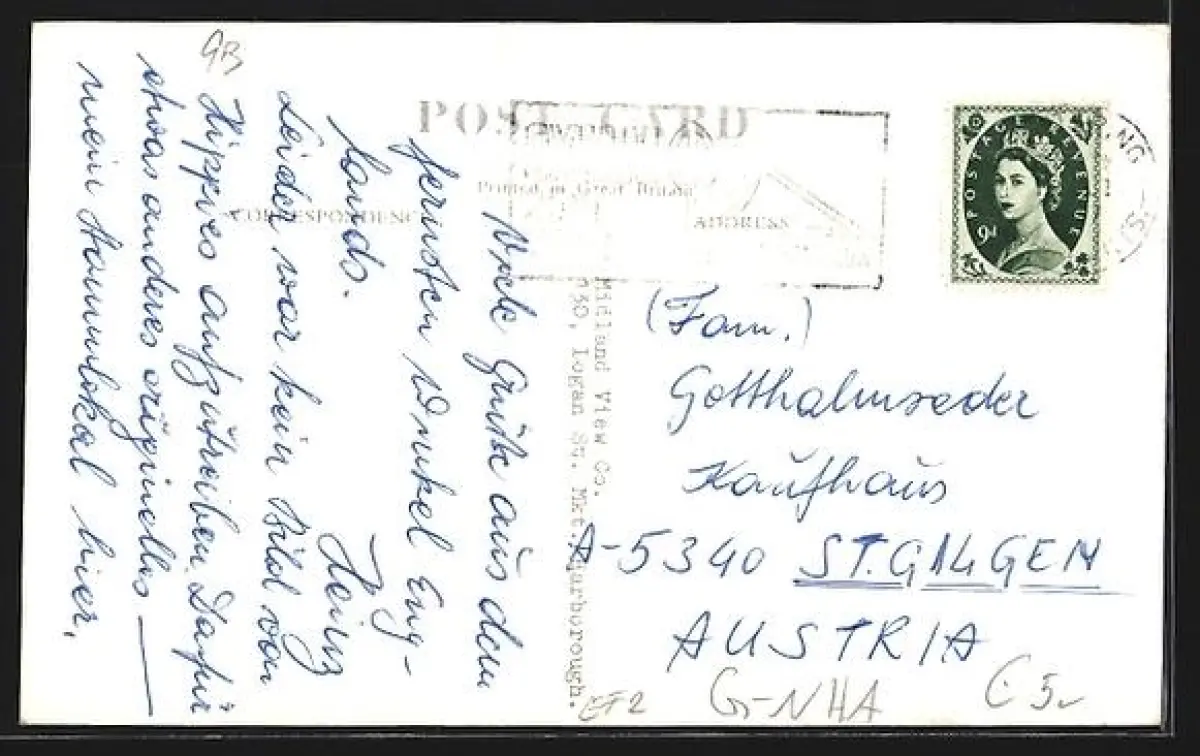 GB
POST CARD
Printed in Great Britain
CORRESPONDENCE
ADDRESS
Viele Grüße aus dem
fernsten Winkel Eng-
lands.
Heinz
Leider war kein Bild von
Kippres aufzutreiben, Dafür
etwas anderes originelles —
mein Stammlokal hier.
Midland View Co.
30, Logan St. Mkt. Harborough.
POSTAGE REVENUE
9D
(Fam.)
Gotthalmseder
Kaufhaus
A-5340 ST. GILGEN
AUSTRIA
EF2
G-NHA
€ 5,-